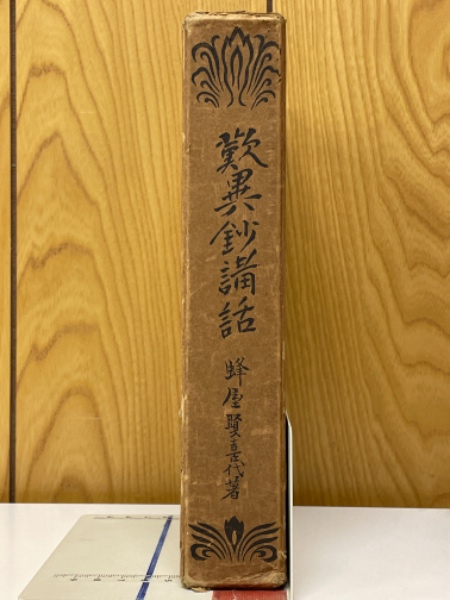 歎異鈔講話
蜂屋賢喜代著